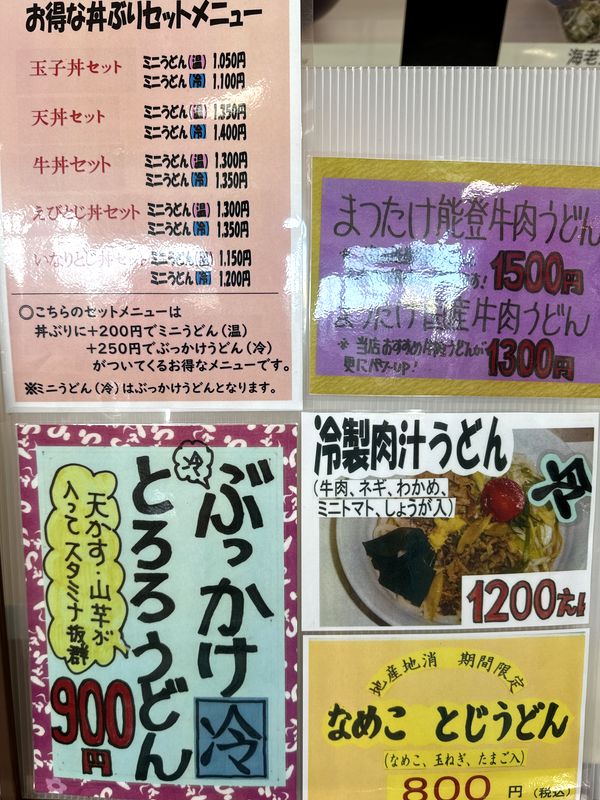 お得な丼ぶりセットメニュー
玉子丼セット ミニうどん(温) 1.050円
ミニうどん(冷) 1.100円
天丼セット ミニうどん(温) 1.350円
ミニうどん(冷) 1.400円
牛丼セット ミニうどん(温) 1.300円
ミニうどん(冷) 1.350円
えびとじ丼セット ミニうどん(温) 1.300円
ミニうどん(冷) 1.350円
いなりとじ丼セット ミニうどん(温) 1.150円
ミニうどん(冷) 1.200円
〇こちらのセットメニューは
丼ぶりに+200円でミニうどん(温)
+250円でぶっかけうどん(冷)
がついてくるお得なメニューです。
※ミニうどん(冷)はぶっかけうどんとなります。
海老
まつたけ能登牛肉うどん
す! 1500円
まつたけ国産牛肉うどん
※ 当店おすすめ牛肉うどんが
更にパワーup! 1300円
冷 ぶっかけ 冷
とろろうどん
天かす・山芋が
入ってスタミナ抜群
900円
冷製肉汁うどん
(牛肉、ネギ、わかめ、
ミニトマト、しょうが入)
冷
1200えん
地産地消 期間限定
なめこ とじうどん
(なめこ、玉ねぎ、たまご入)
800円(税込)